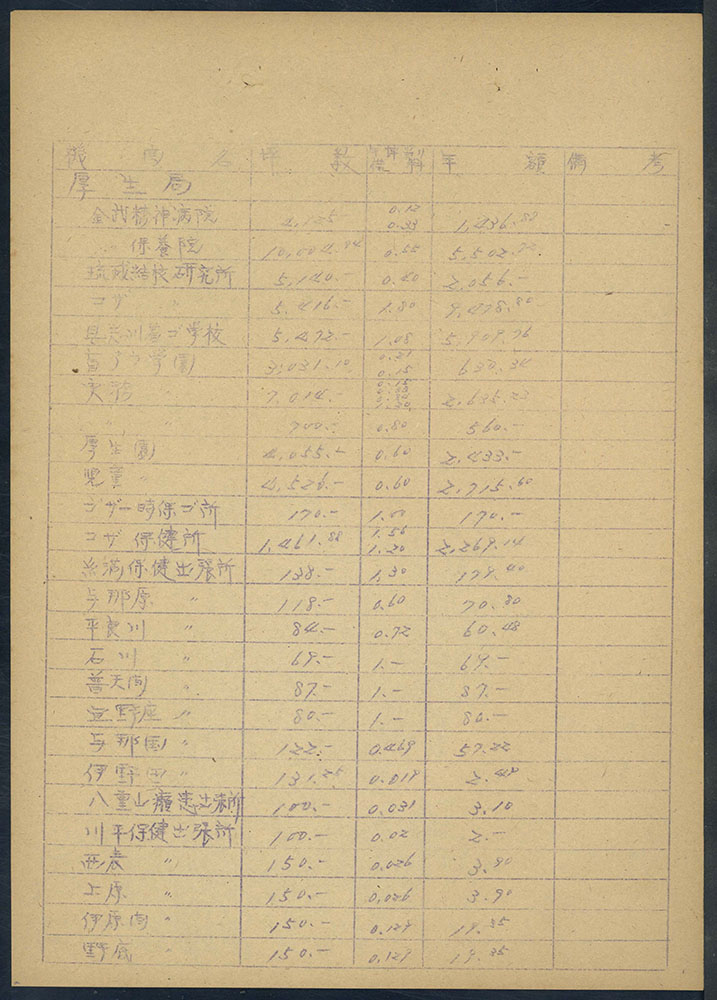 坪 数 年 額 備 考
厚生局
金武精神病院 4,125 0.12 0.33 1,436.88
〃 保養院 10,004.04 0.55 5,502.22
琉球結核研究所 5,140.- 0.40 2,056.-
コザ 〃 5,416.- 1.80 9,478.80
具志川看ゴ学校 5,472.- 1.08 5,909.76
盲アウ学園 3,031.10 0.21 0.15 630.34
実務 〃 7,014.-
〃 〃 700.- 0.80 560.-
厚生園 4,055.- 0.60 2,433.-
児童〃 4,526.- 0.60 2,715.60
コザ一時保ゴ所 170.- 1.00 170.-
コザ保健所 1,461.88 1.56 1.20 2,269.14
糸満保健出張所 138.- 1.30 179.40
与那原 〃 118.- 0.60 70.80
平良川 〃 84.- 0.72 60.48
石川 〃 69.- 1.- 69.-
普天間 〃 87.- 1.- 87.-
宜野座 〃 80.- 1.- 80.-
与那国 〃 122.- 0.469 57.22
伊野田 〃 131.25 0.019 2.49
八重山癩患出来所 100.- 0.031 3.10
川平保健出張所 100.- 0.02 2.-
西表 〃 150.- 0.026 3.90
上原 〃 150.- 0.026 3.90
伊原間 〃 150.- 0.129 19.35
野底 〃 150.- 0.129 19.35